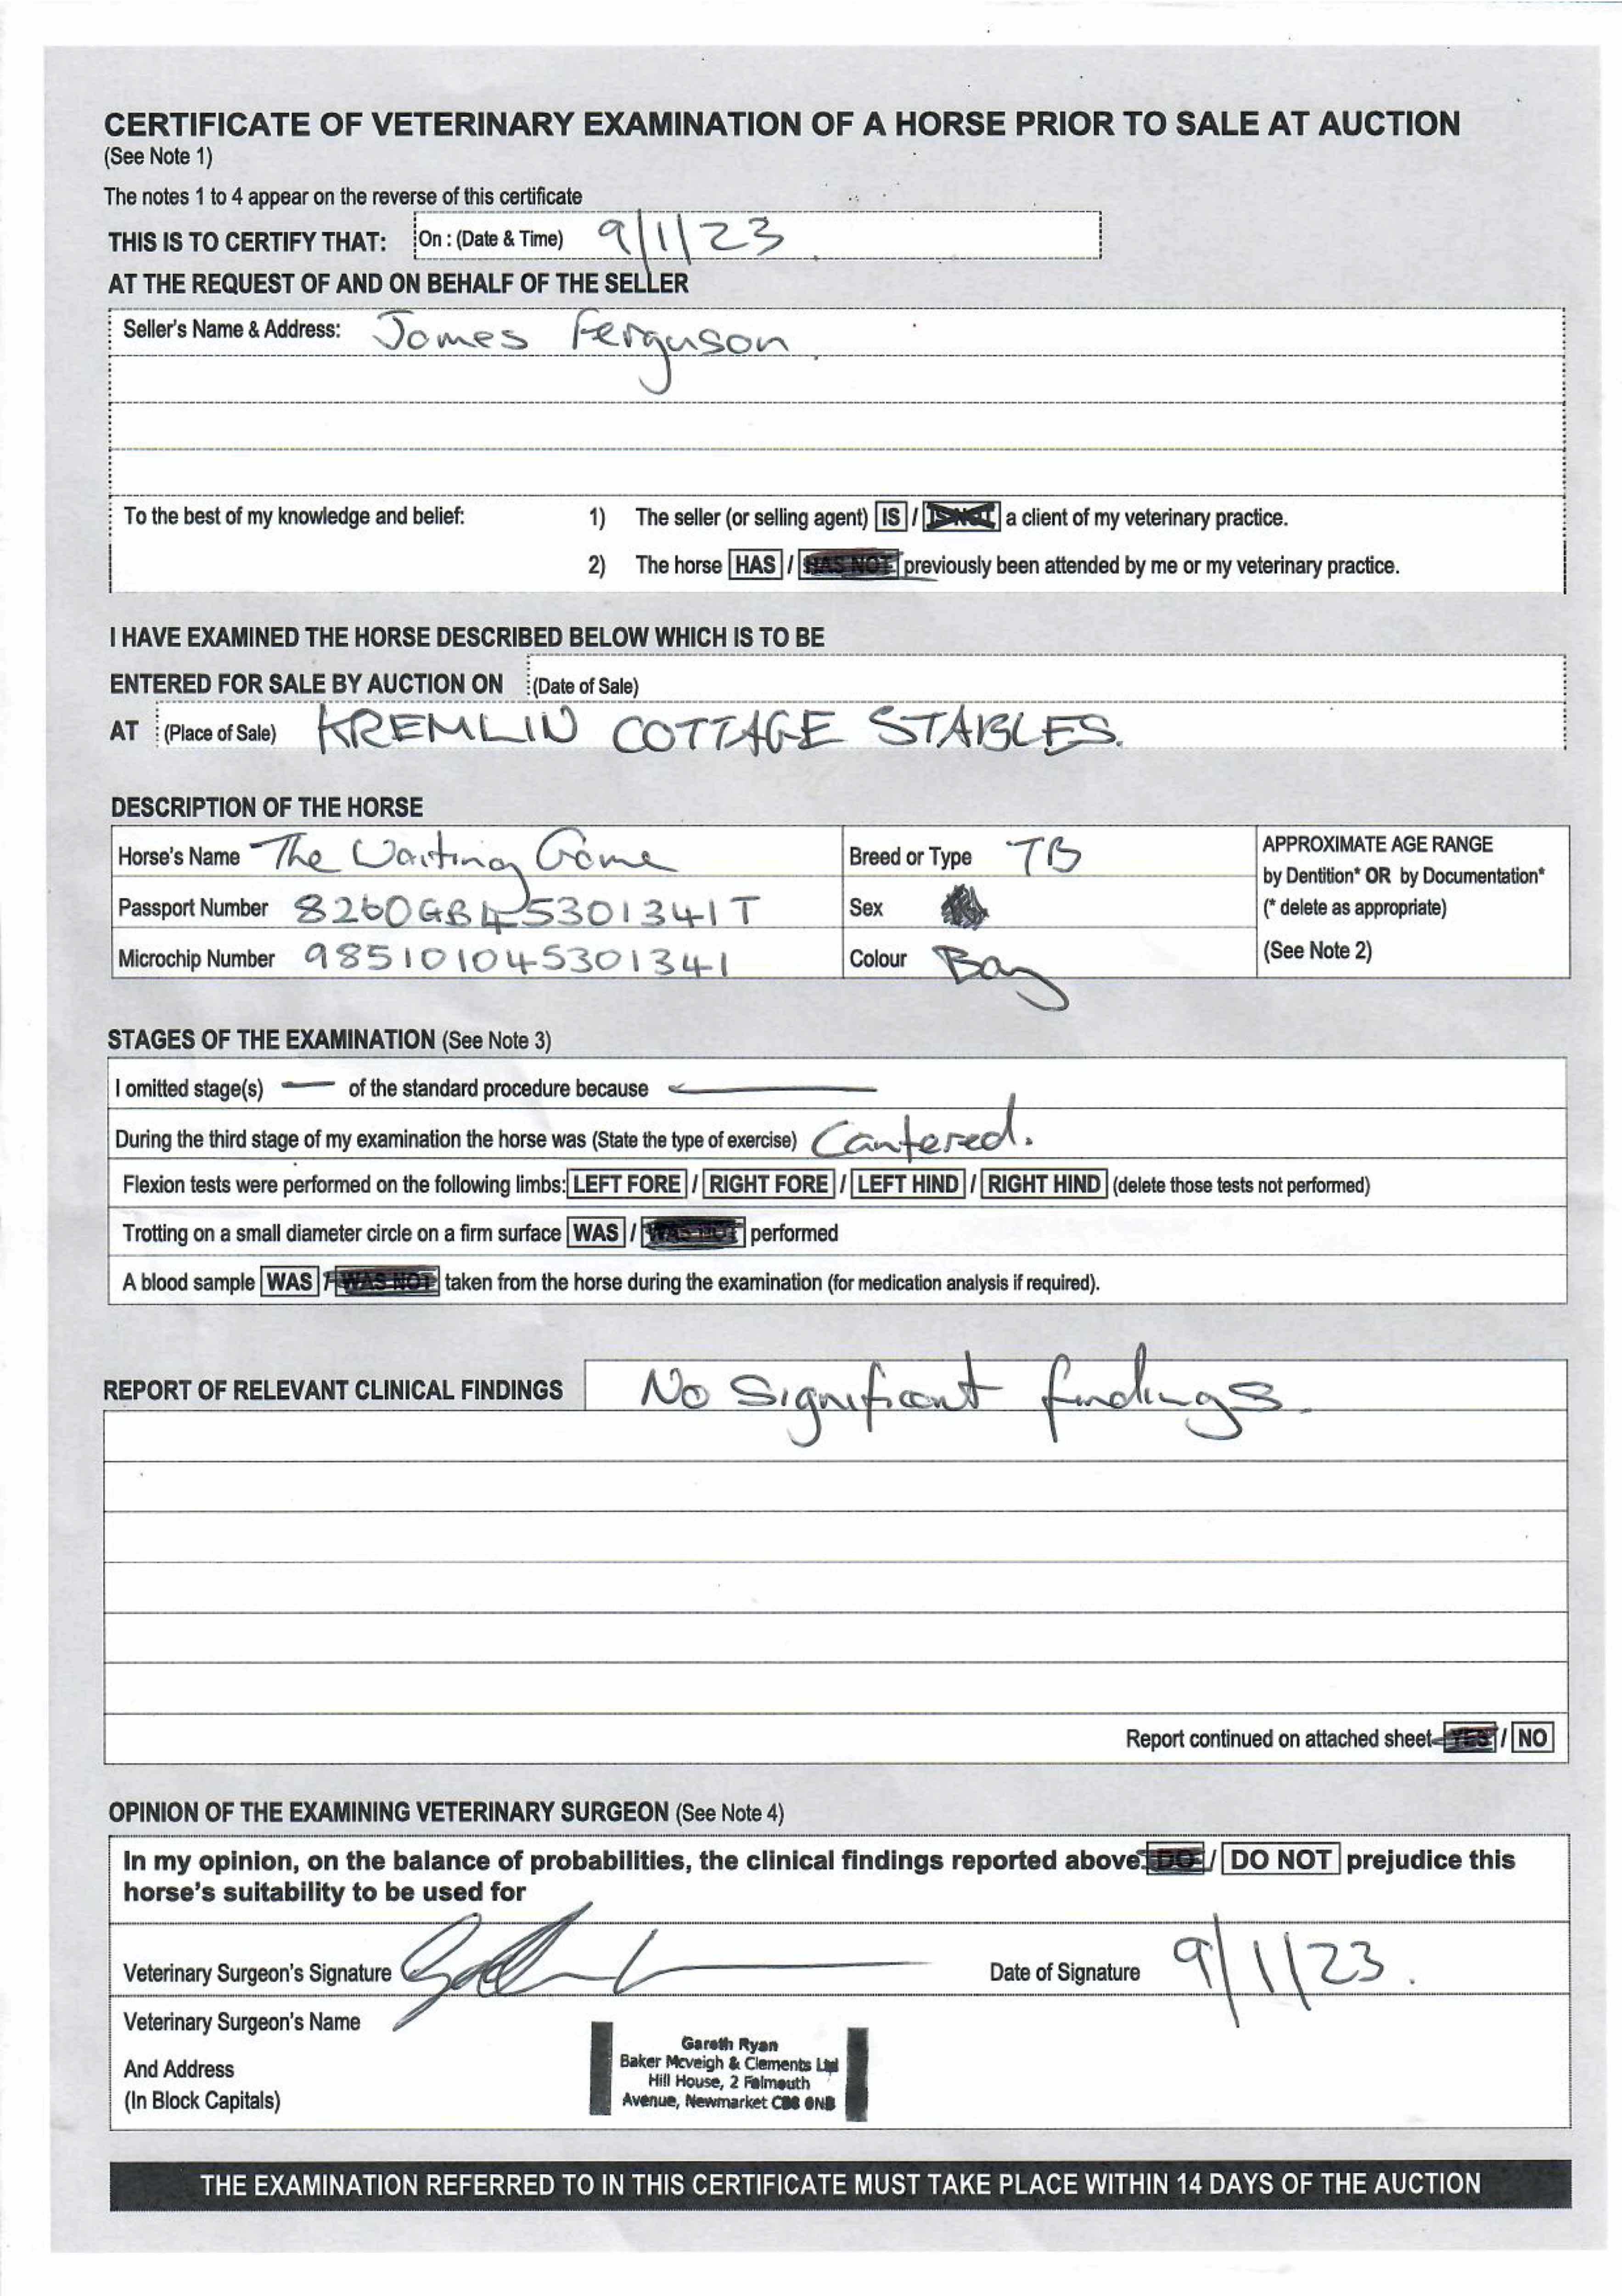 CERTIFICATE OF VETERINARY EXAMINATION OF A HORSE PRIOR TO SALE AT AUCTION
(See Note 1)
The notes 1 to 4 appear on the reverse of this certificate
THIS IS TO CERTIFY THAT: On : (Date & Time) 9/1/23
AT THE REQUEST OF AND ON BEHALF OF THE SELLER
Seller's Name & Address: James Ferguson
To the best of my knowledge and belief: 1) The seller (or selling agent) IS / IS NOT a client of my veterinary practice.
2) The horse HAS / HAS NOT previously been attended by me or my veterinary practice.
I HAVE EXAMINED THE HORSE DESCRIBED BELOW WHICH IS TO BE
ENTERED FOR SALE BY AUCTION ON (Date of Sale)
AT (Place of Sale) KREMLIN COTTAGE STABLES.
DESCRIPTION OF THE HORSE
Horse's Name The Waiting Game Breed or Type TB APPROXIMATE AGE RANGE
by Dentition* OR by Documentation*
Passport Number 8260GB45301341T Sex (* delete as appropriate)
Microchip Number 985101045301341 Colour Bay (See Note 2)
STAGES OF THE EXAMINATION (See Note 3)
I omitted stage(s) — of the standard procedure because —
During the third stage of my examination the horse was (State the type of exercise) Cantered.
Flexion tests were performed on the following limbs: LEFT FORE / RIGHT FORE / LEFT HIND / RIGHT HIND (delete those tests not performed)
Trotting on a small diameter circle on a firm surface WAS / WAS NOT performed
A blood sample WAS / WAS NOT taken from the horse during the examination (for medication analysis if required).
REPORT OF RELEVANT CLINICAL FINDINGS No Significant findings.
Report continued on attached sheet YES / NO
OPINION OF THE EXAMINING VETERINARY SURGEON (See Note 4)
In my opinion, on the balance of probabilities, the clinical findings reported above DO / DO NOT prejudice this
horse's suitability to be used for
Veterinary Surgeon's Signature Date of Signature 9/1/23.
Veterinary Surgeon's Name
And Address
(In Block Capitals)
Gareth Ryan
Baker Mcveigh & Clements Ltd
Hill House, 2 Falmouth
Avenue, Newmarket CB8 0NB
THE EXAMINATION REFERRED TO IN THIS CERTIFICATE MUST TAKE PLACE WITHIN 14 DAYS OF THE AUCTION